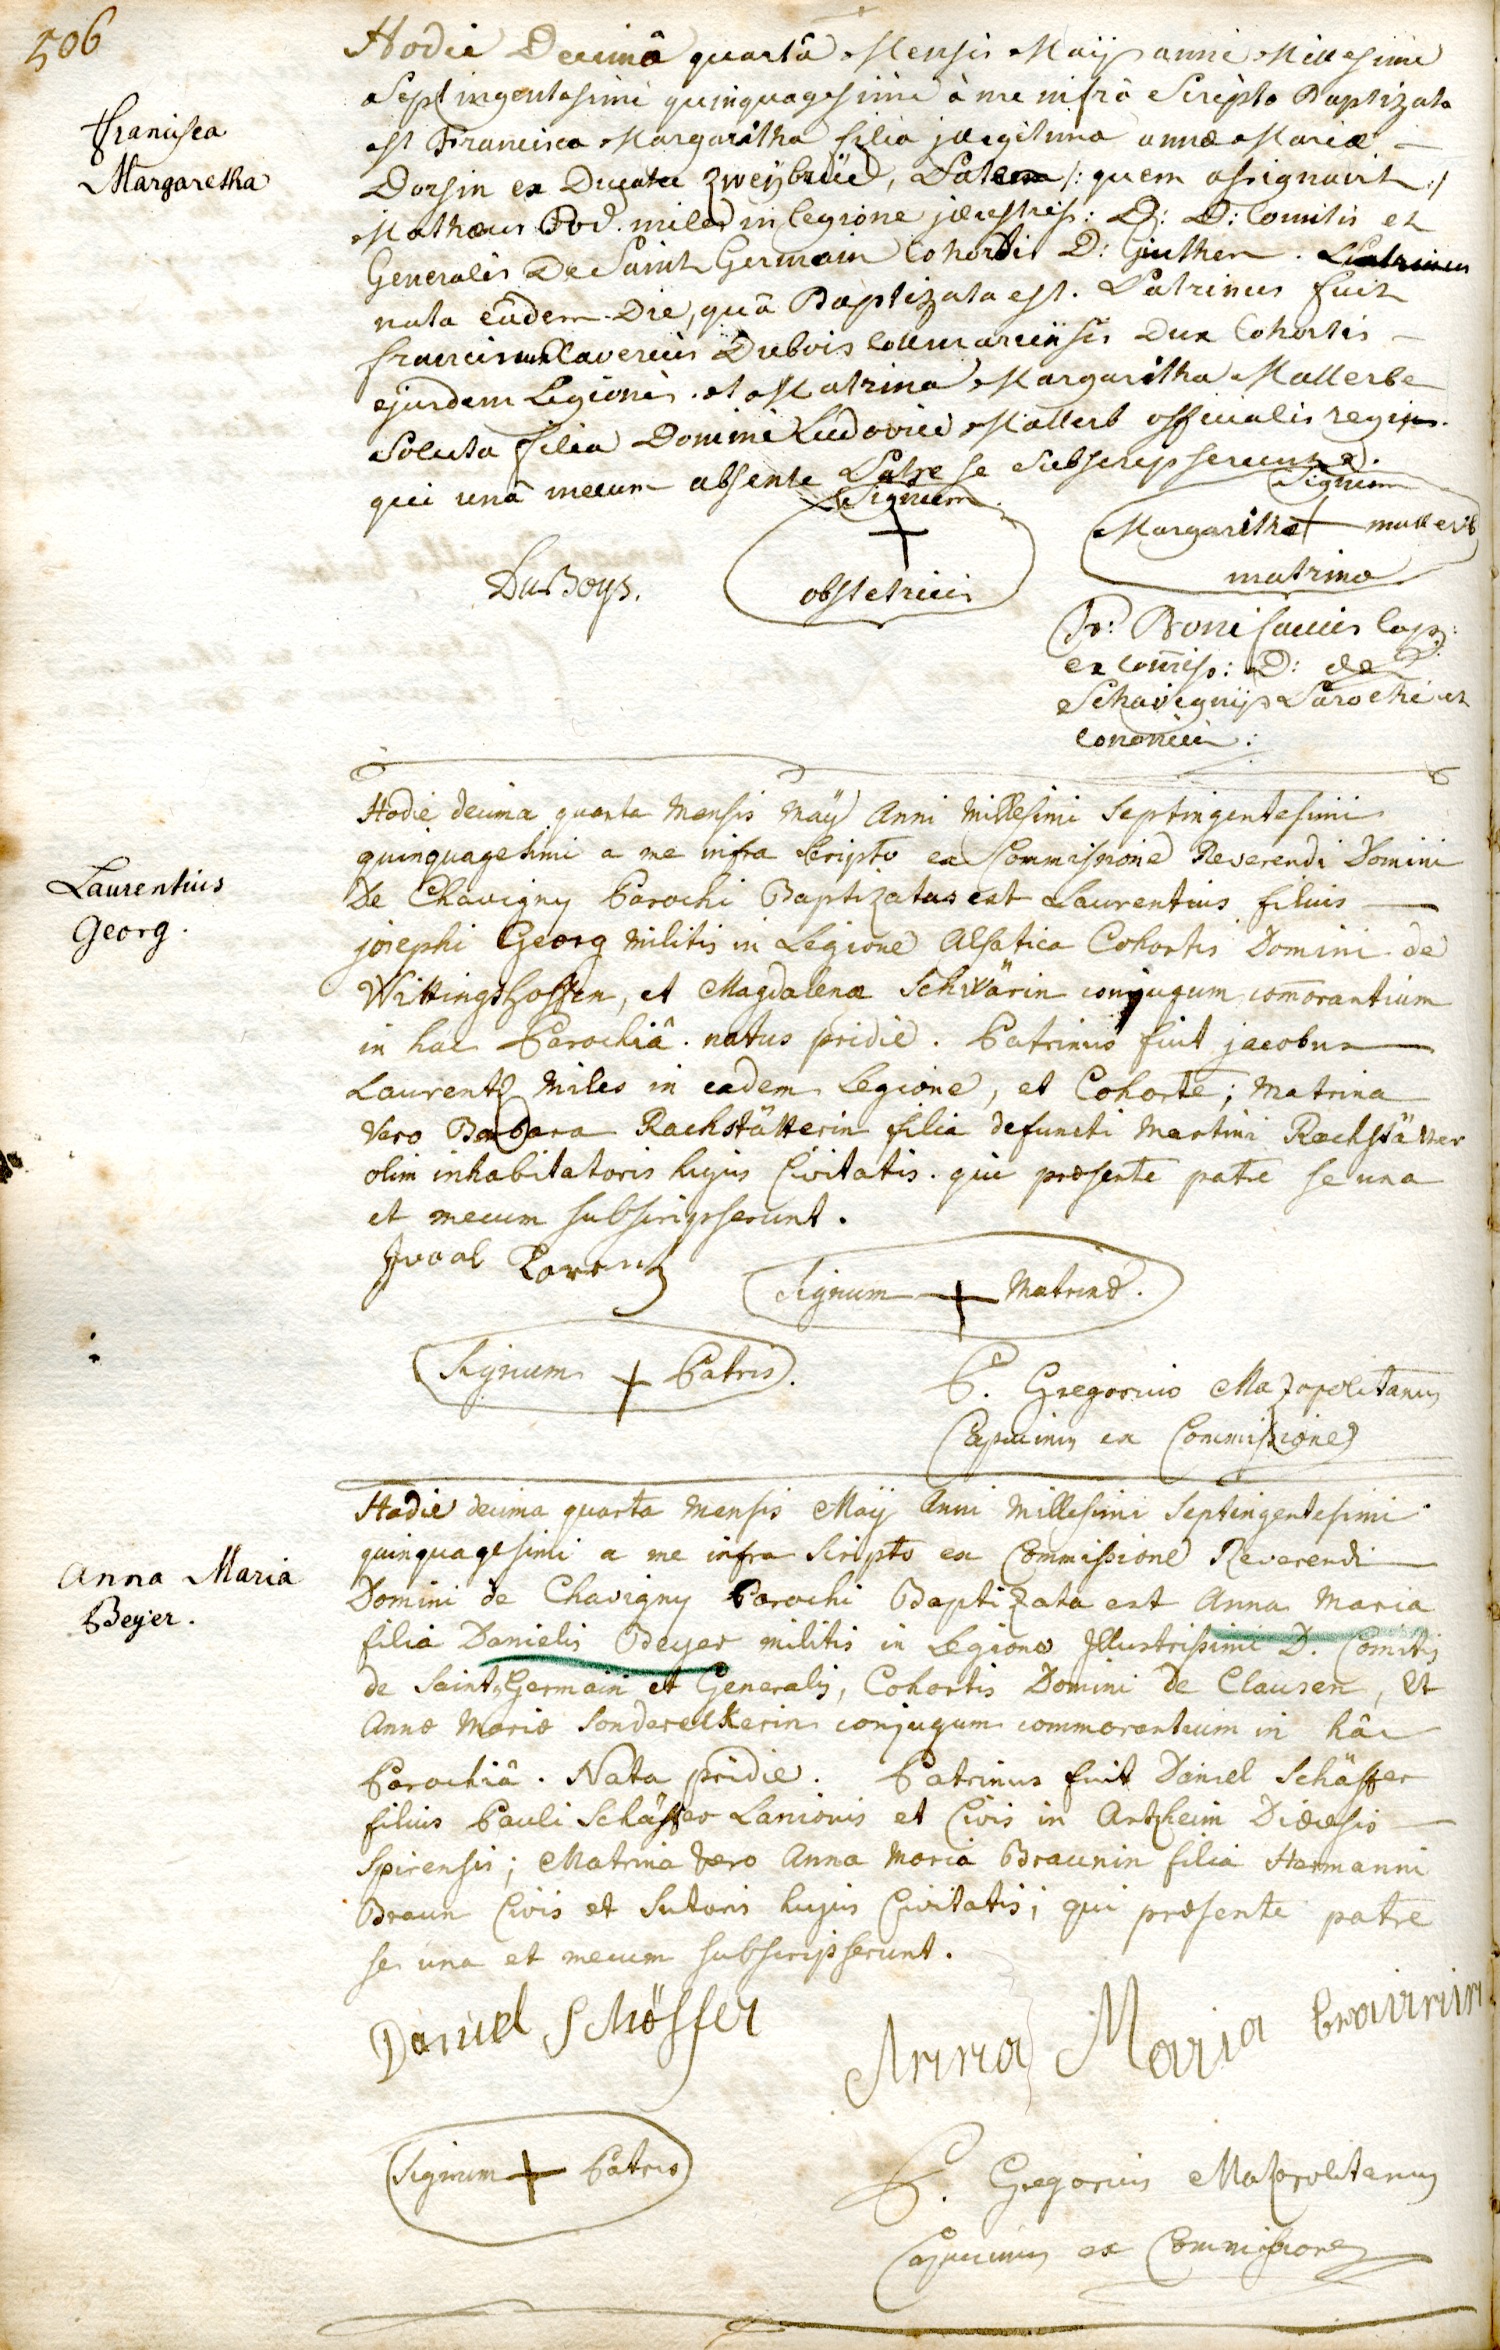 506
Francisca
Margaretha
Hodie Decimâ quartâ Mensis Maij anni Millesimi
Septingentesimi quinquagesimi à me infrà Scripto Baptizata
est Francisca Margaritha filia illegitima annæ Mariæ
Dorsin ex Ducatu Zweÿbrück, Patrem /: quem assignavit :/
Mathæus Bod. miles in legione illustriss: D: D: Comitis et
Generalis De Saint Germain Cohortis D: Giuther.
nata eâdem Die, quâ Baptizata est. Patrinus fuit
franciscus Xaverius Dubois Collmariensis Dux Cohortis
ejusdem Legionis. et Matrina Margaritha Mallerbe
Soluta filia Domini Ludovici Mallerb officialis regii.
qui unâ mecum absente Patre se Subscripserunt.
Signum + obstetricis
Signum
Margaritha + mallerb
matrina
DuBoys.
Fr: Bonifacius Cap:
ex com̄iss: D: de
Schavignÿ Parochi et
canonici:
Laurentius
Georg.
Hodie decima quarta Mensis Maÿ Anni Millesimi Septingentesimi
quinquagesimi a me infra Scripto ex Commissione Reverendi Domini
De Chavigny Parochi Baptizatus est Laurentius filius
josephi Georg Militis in Legione Alsatica Cohortis Domini de
Wittingshoffen, et Magdalenæ Schwärin conjugum com̄orantium
in hac Parochiâ. natus pridie. Patrinus fuit jacobus
Laurentz Miles in eadem Legione, et Cohorte; Matrina
Vero Barbara Rachstätterin filia defuncti Martini Rachstätter
olim inhabitatoris hujus Civitatis. qui præsente patre se una
et mecum subscripserunt.
Lorentz
Signum + Matrinæ.
Signum + Patris.
P. Gregorius Mazopolitanus
Capucinus ex Commissione
Anna Maria
Beyer.
Hodie decima quarta Mensis Maij Anni Millesimi Septingentesimi
quinquagesimi a me infra Scripto ex Commissione Reverendi
Domini de Chavigny Parochi Baptizata est Anna Maria
filia Danielis Beyer militis in Legione Illustrissimi D. Comitis
de Saint Germain et Generalis, Cohortis Domini De Clausen, Et
Annæ Mariæ Sondereckerin conjugum commorantium in hâc
Parochiâ. Nata pridie. Patrinus fuit Daniel Schäffer
filius Pauli Schäffer Lanionis et Civis in Artzheim Diœcesis
Spirensis; Matrina Vero Anna Maria Braunin filia Hermanni
Braun Civis et Sutoris hujus Civitatis; qui præsente patre
se una et mecum subscripserunt.
Daniel Schöffer
Anna Maria braunin
Signum + Patris
P. Gregorius Mazopolitanus
Capucinus ex Commissione